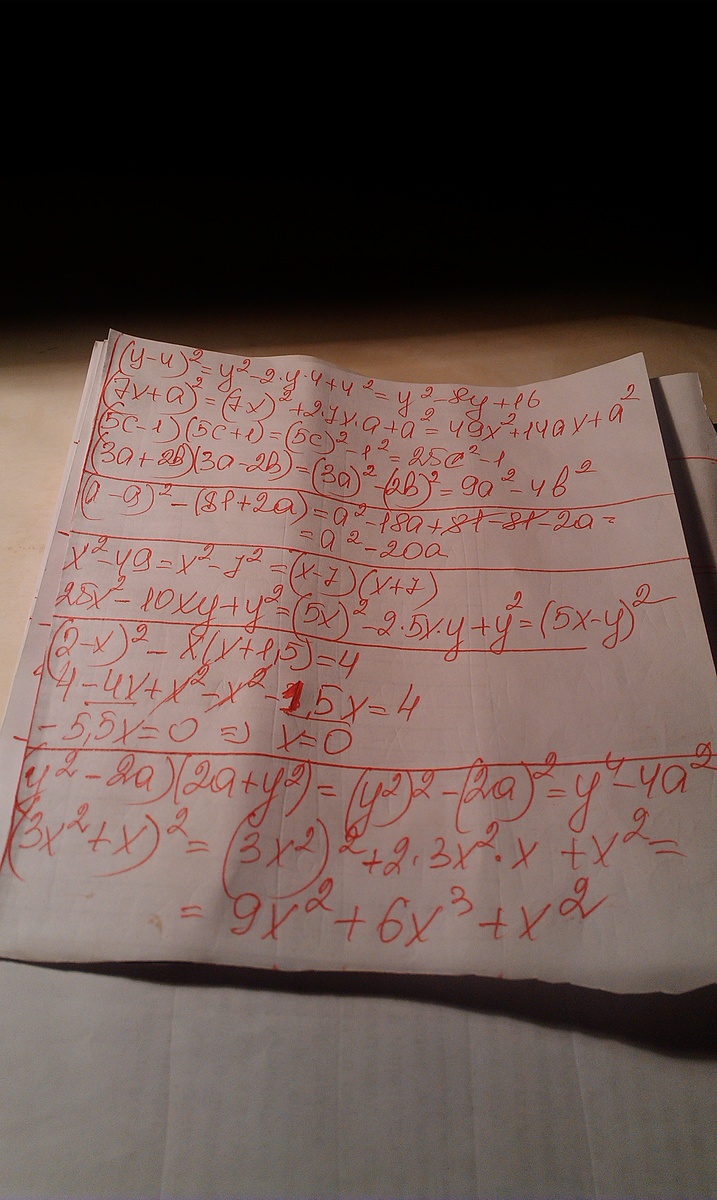 (y-4)² = y² - 2·y·4 + 4² = y² - 8y + 16
(7x+a)² = (7x)² + 2·7x·a + a² = 49x² + 14ax + a²
(5c-1)(5c+1) = (5c)² - 1² = 25c² - 1
(3a+2b)(3a-2b) = (3a)² - (2b)² = 9a² - 4b²
(a-9)² - (81+2a) = a² - 18a + 81 - 81 - 2a =
= a² - 20a
x² - 49 = x² - 7² = (x-7)(x+7)
25x² - 10xy + y² = (5x)² - 2·5x·y + y² = (5x-y)²
(2-x)² - x(x+1,5) = 4
4 - 4x + x² - x² - 1,5x = 4
-5,5x = 0 => x = 0
(y² - 2a)(2a + y²) = (y²)² - (2a)² = y⁴ - 4a²
(3x² + x)² = (3x²)² + 2·3x²·x + x² =
= 9x² + 6x³ + x²